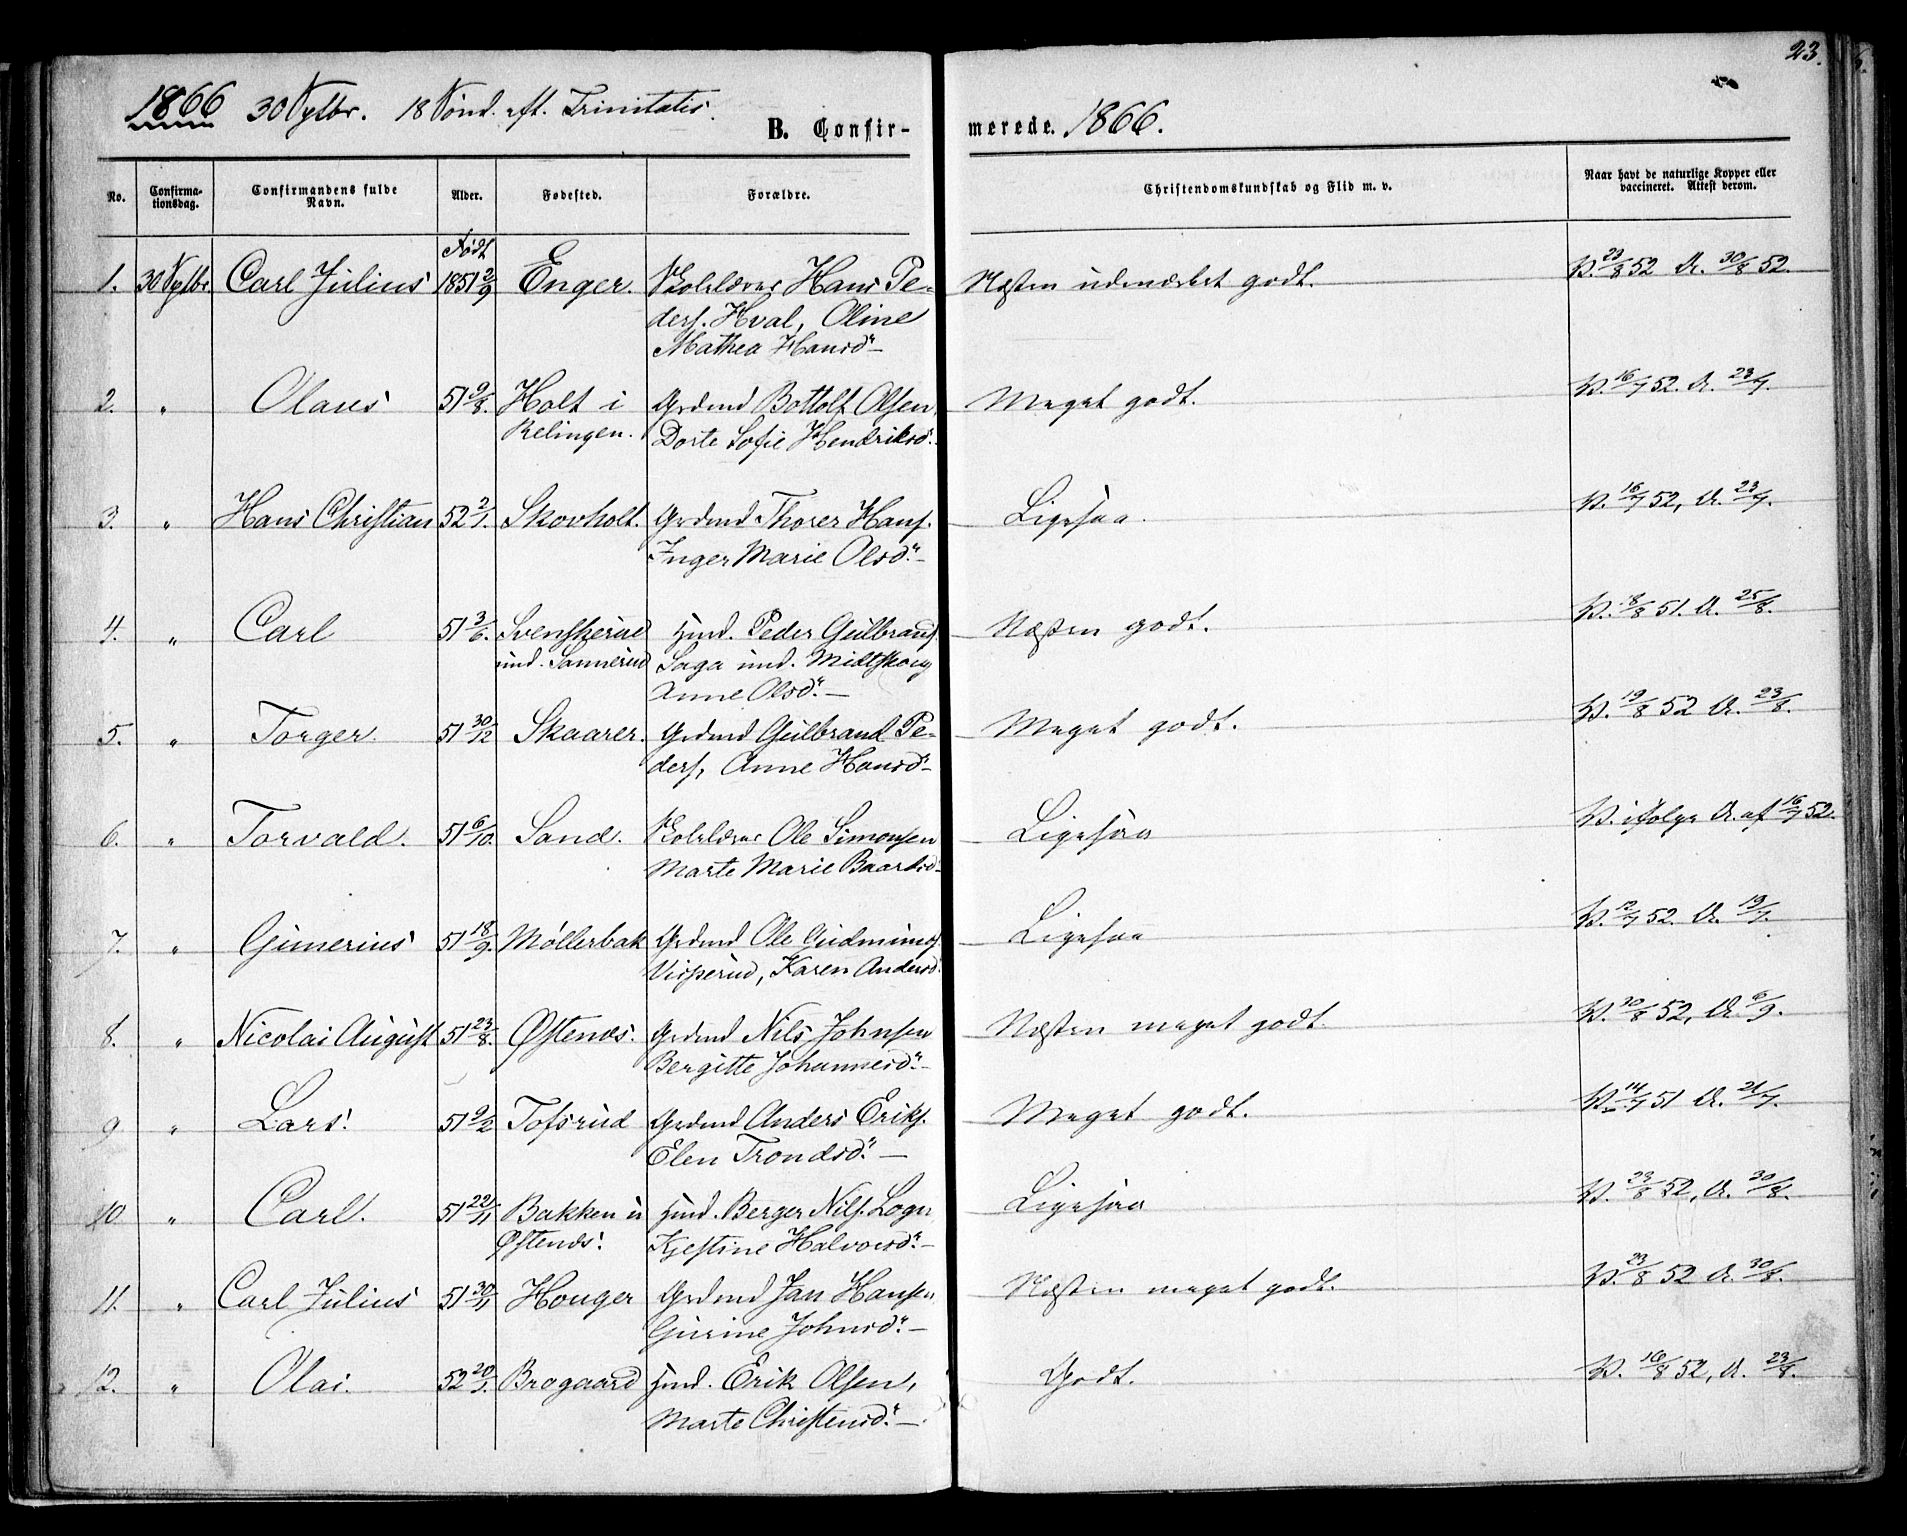 23.
1866 30 Septbr. 18 Sønd. eft. Trinitatis.
B. Confir- merede. 1866.
No. Confirma- tionsdag. Confirmandens fulde Navn. Alder. Fødested. Forældre. Christendomskundskab og Flid m. v. Naar havt de naturlige Kopper eller vaccineret. Attest derom.
Født
1. 30 Septbr Carl Julius 1851 2/9 Enger. Skolelærer Hans Pe- Næsten udmærket godt. V. 23/8 52 A. 30/8 52.
ders. Hval, Oline
Mathea Hansd.
2. " Olaus 51 9/8. Holt i Grdmd Bottolf Olsen, Meget godt. V. 16/7 52. A. 23/7.
Relingen. Dorte Sofie Hendriksd.
3. " Hans Christian 52 2/1. Skovholt. Grdmd Thorer Hans. Ligesaa. V. 16/7 52, A. 23/7.
Inger Marie Olsd.
4. " Carl 51 3/6. Svenskerud Hmd. Peder Gulbrands. Næsten godt. V. 18/8 51. A. 25/8.
und. Sannerud Saga und. Midtskoug
Anne Olsd.
5. " Torger. 51 30/12 Skaarer. Grdmd Gulbrand Pe- Meget godt. V. 19/8 52 A. 23/8.
ders, Anne Hansd.
6. " Torvald. 51 6/10. Sand. Skolelærer Ole Simonsen Ligesaa V. ifølge A. af 16/7 52.
Marte Marie Baardsd.
7. " Gunerius 51 18/9. Møllerbak Grdmd Ole Gudmunds. Ligesaa V. 12/7 52. A. 19/7.
Visperud, Karen Andersd.
8. " Nicolai August 51 23/8. Østenos. Grdmd Nils Johnsen Næsten meget godt. V. 30/8 52, A. 6/9.
Bergitte Johannesd.
9 " Lars. 51 9/2 Tofsrud Grdmd Anders Eriks. Meget godt. V. 14/7 51 A. 21/7.
Elen Trondsd.
10 " Carl. 51 22/11 Bakken u Hmd. Berger Nils. Logn Ligesaa V. 23/8 52, A. 30/8.
Østenos. Kjestine Halvorsd.
11. " Carl Julius 51 30/11 Houger Grdmd Jan Hansen, Næsten meget godt. V. 23/8 52 A. 30/8.
Gurine Johnsd.
12. " Olai. 52 20/1. Brogaard Hmd. Erik Olsen, Godt. V. 16/8 52, A. 23/8.
Marte Christensd.